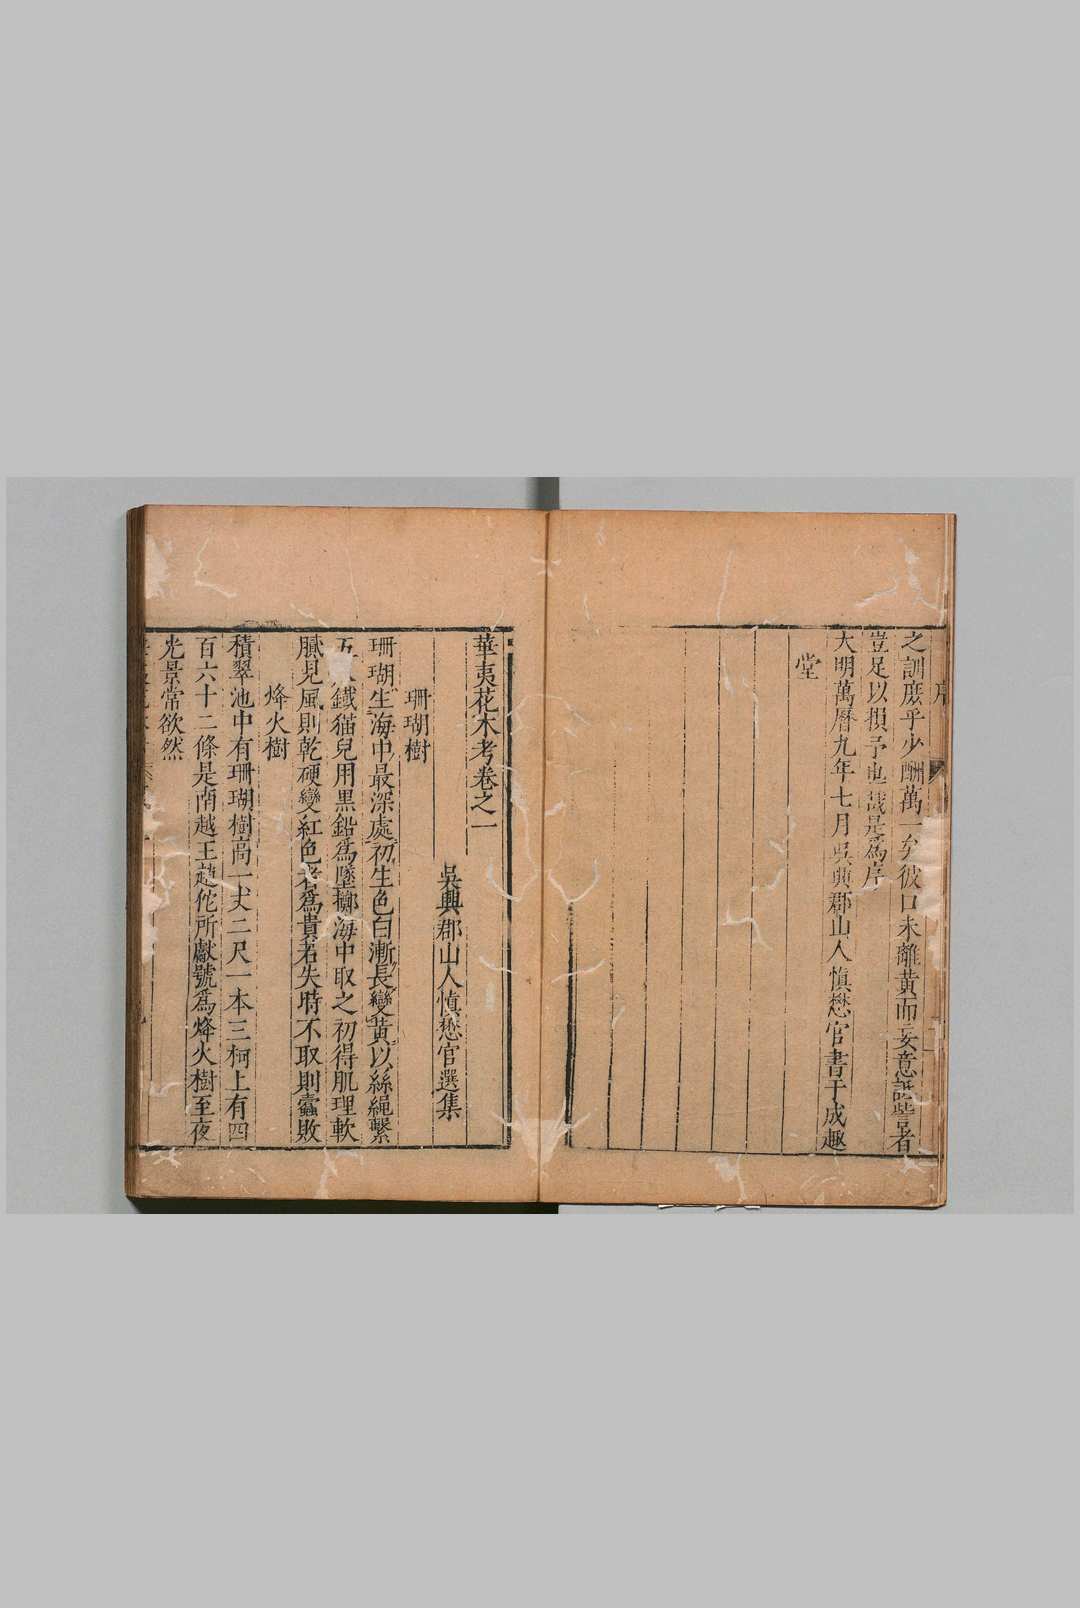 之訓庶乎少酬萬一矣彼口未離黃而妄意詆訾者
豈足以損予也哉是爲序
大明萬曆九年七月吳興郡山人慎懋官書于成趣
堂
華夷花木考卷之一
吳興郡山人慎懋官選集
珊瑚樹
珊瑚生海中最深處初生色白漸長變黃以絲繩繫
五鐵猫兒用黑鉛爲墜擲海中取之初得肌理軟
膩見風則乾硬變紅色者爲貴若失時不取則蠹敗
烽火樹
積翠池中有珊瑚樹高一丈二尺一本三柯上有四
百六十二條是南越王趙佗所獻號爲烽火樹至夜
光景常欲然